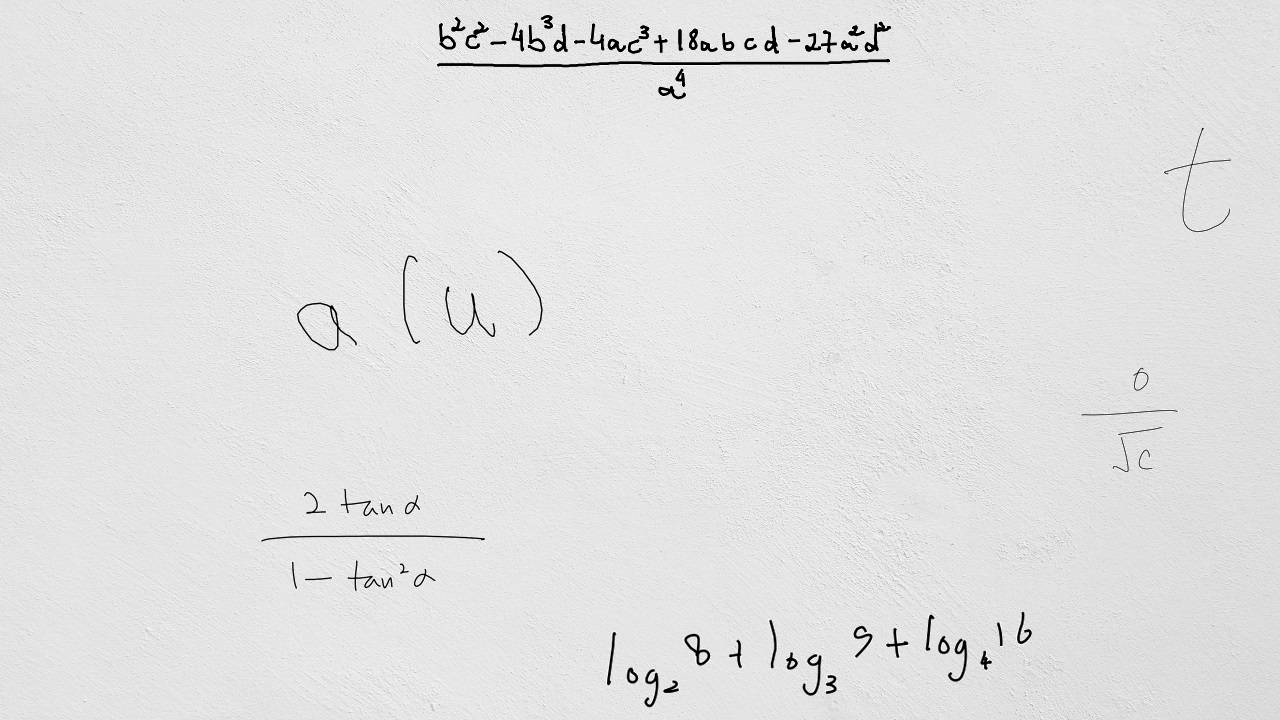 \frac{b^2c^2-4b^3d-4ac^3+18abcd-27a^2d^2}{a^4}
t
a(u)
\frac{0}{\sqrt{c}}
\frac{2\tan\alpha}{1-\tan^2\alpha}
\log_2 8+\log_3 9+\log_4 16